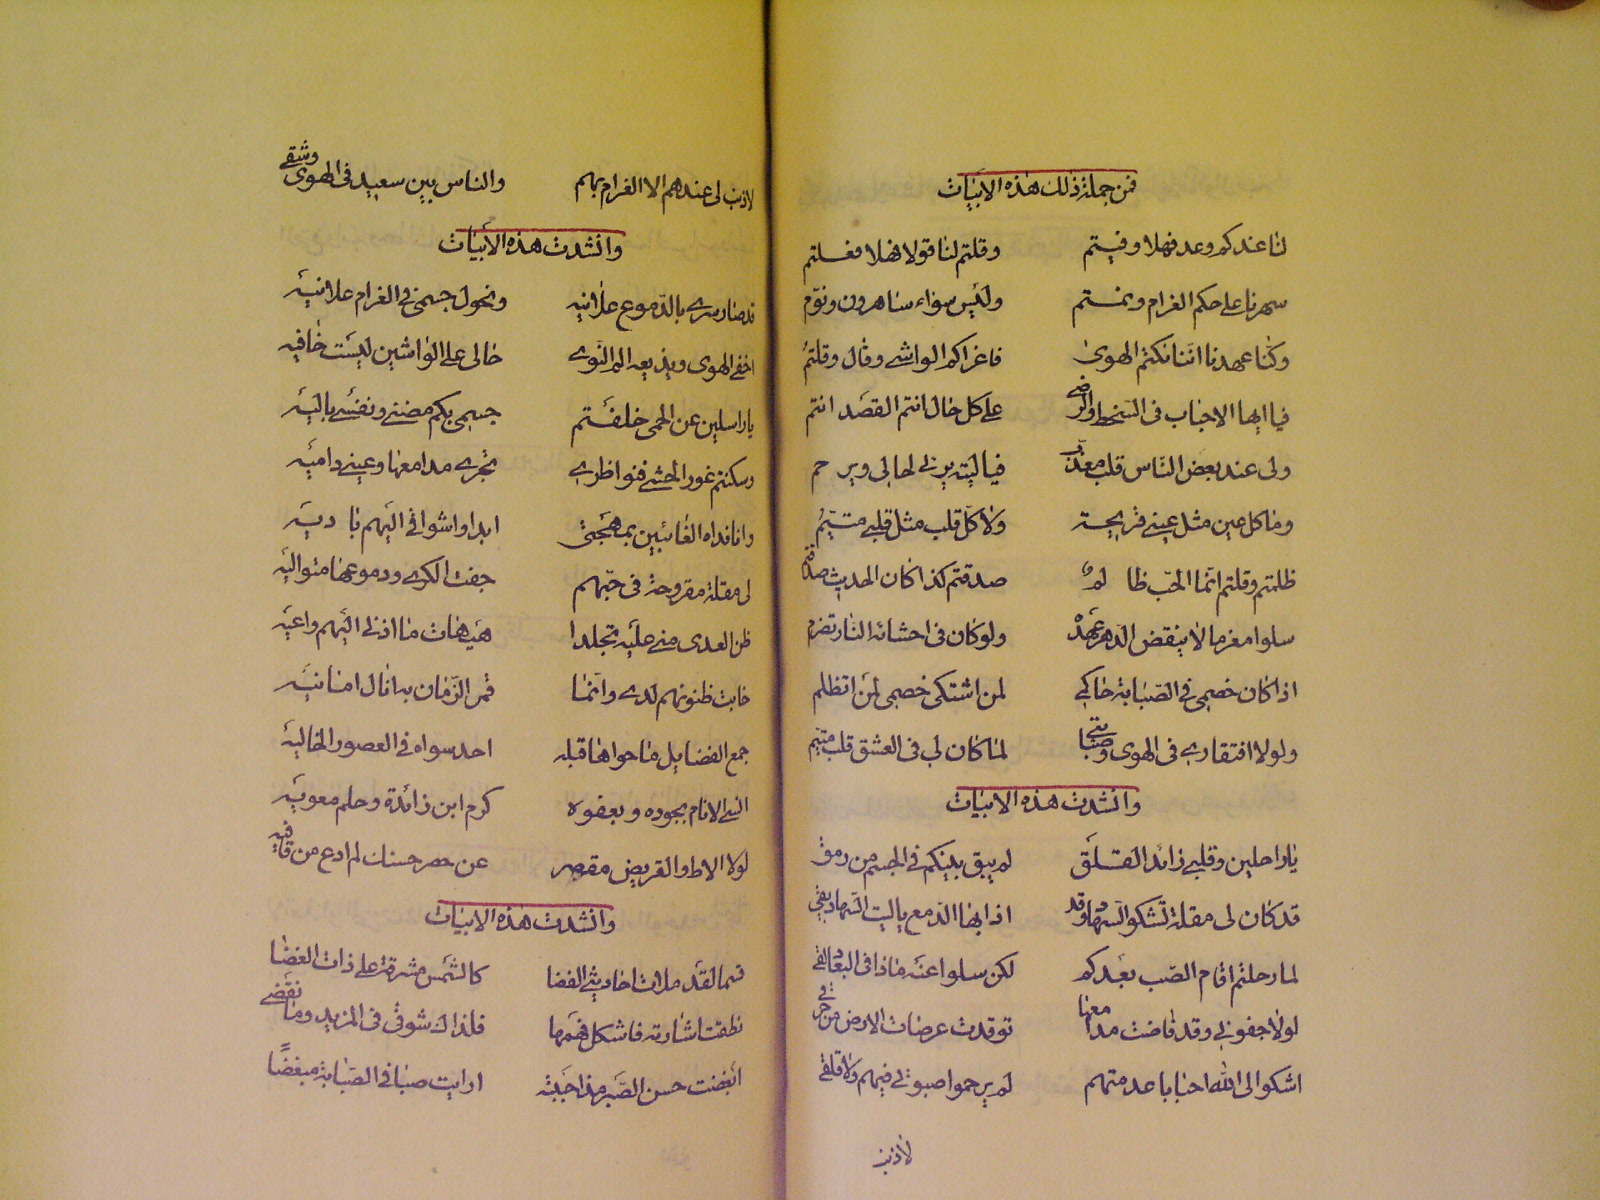 فمن جملة ذلك هذه الابيات
لنا عندكم وعد فهلا وفيتم وقلتم لنا قولا فهلا فعلتم
سهرنا على حكم الغرام ونمتم وليس سواء ساهرون ونوم
وكنا عهدنا اننا نكتم الهوى فاغراكم الواشي وقال وقلتم
فيا ايها الاحباب في السخط والرضى على كل حال انتم القصد انتم
ولي عند بعض الناس قلب معذب فيا ليته يرثي لحالي ويرحم
وما كل عين مثل عيني قريحة ولا كل قلب مثل قلبي متيم
ظلمتم وقلتم انما الحب ظالم صدقتم كذا كان الحديث صدقتم
سلوا مغرما لا ينقض الدهر عهده ولو كان في احشائه النار تضرم
اذا كان خصمي في الصبابة حاكمي لمن اشتكي خصمي لمن اتظلم
ولولا افتقاري في الهوى وصبابتي لما كان لي في العشق قلب متيم
وانشدت هذه الابيات
يا راحلين وقلبي زائد القلق لم يبق بينكم في الجسم من رمق
قد كان لي مقلة تشكو السهاد وقد اذابها الدمع يا ليت السهاد بقي
لما رحلتم اقام الصب بعدكم لكن سلوا عنه ماذا في البعاد لقي
لولا جفوني وقد فاضت مدامعها توقدت عرضات الارض من حرقي
اشكوا الى الله احبابا عدمتهم لم يرحموا صبوتي فيهم ولا قلقي
لا ذنب
لا ذنب لي عندهم الا الغرام بهم والناس بين سعيد في الهوى وشقي
وانشدت هذه الأبيات
قد صار سري بالدموع علانيه ونحول جسمي في الغرام علانيه
اخفي الهوى ويذيعه الم النوى حالي على الواشين ليست خافيه
يا راسلين عن الحمى خلفتم جسمي بكم مضنى ونفسي باليه
وسكنتم غور الحشى فنواظري تجري مدامعها وعيني داميه
وانا فداه الغائبين بمهجتي ابدا واشواقي اليهم باديه
لي مقلة مقروحة في حبهم جفت الكرى ودموعها متواليه
ظن العدى مني عليه تجلدا هيهات ما اذني اليهم واعيه
خابت ظنونهم لدي وانما قمر الزمان به انال امانيه
جمع الفضايل ما حواها قبله احد سواه في العصور الخاليه
انسى الانام بجوده وبعفوه كرم ابن زائدة وحلم معويه
لولا الاطا والقريض مقصر عن حصر حسنك لم ادع من قافيه
وانشدت هذه الابيات
قسما لقد ملات احاديث الفضا كالشمس مشرقة على ذات الغضا
نطقت اشارته فاشكل فهمها فلذاك شوقي في المزيد وما نقضى
ابغضت حسن الصبر مذ احببته ارايت صبا في الصبابة مبغضا